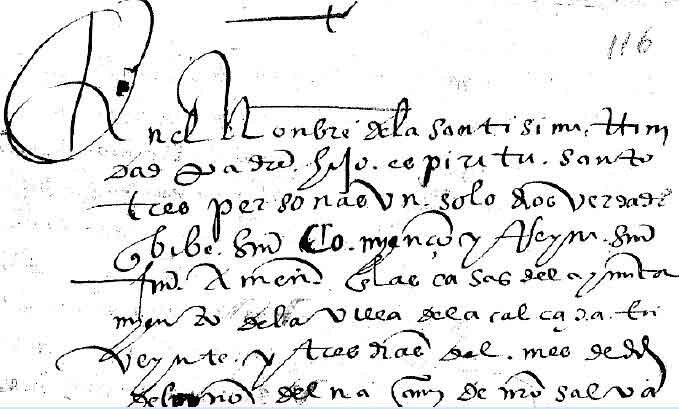 116
En el Nonbre de la santisima trini
dad padre hijo espiritu santo
tres personas un solo dios verdadero
q bibe sin comienço y Reyna sin
fin Amen En las casas del ayunta
myento de la villa de la calçada En
veynte y tres dias del mes de
del naçim de nro salva